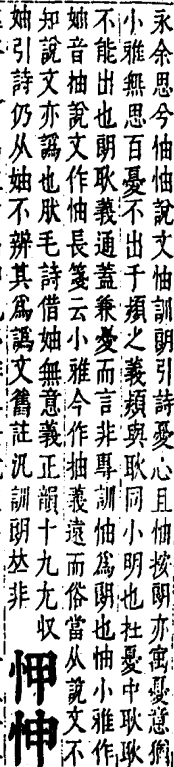 永余思兮怞怞說文怞訓朗引詩憂心且怞按朗亦寓憂意猶
小雅無思百憂不出于熲之義熲與耿同小明也杜憂中耿耿
不能出也朗耿義通蓋兼憂而言非專訓怞爲朗也怞小雅作
妯音柚說文作怞長箋云小雅今作抽義遠而俗當从說文不
知說文亦譌也肰毛詩借妯無意義正韻十九尢收
妯引詩仍从妯不辨其爲譌文舊註汎訓朗𠀤非